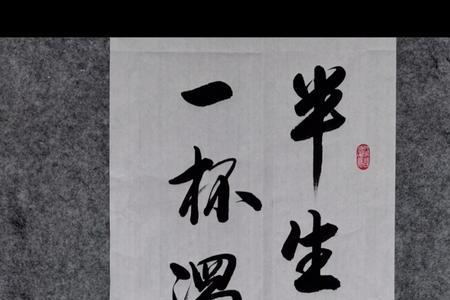 半生
一杯温